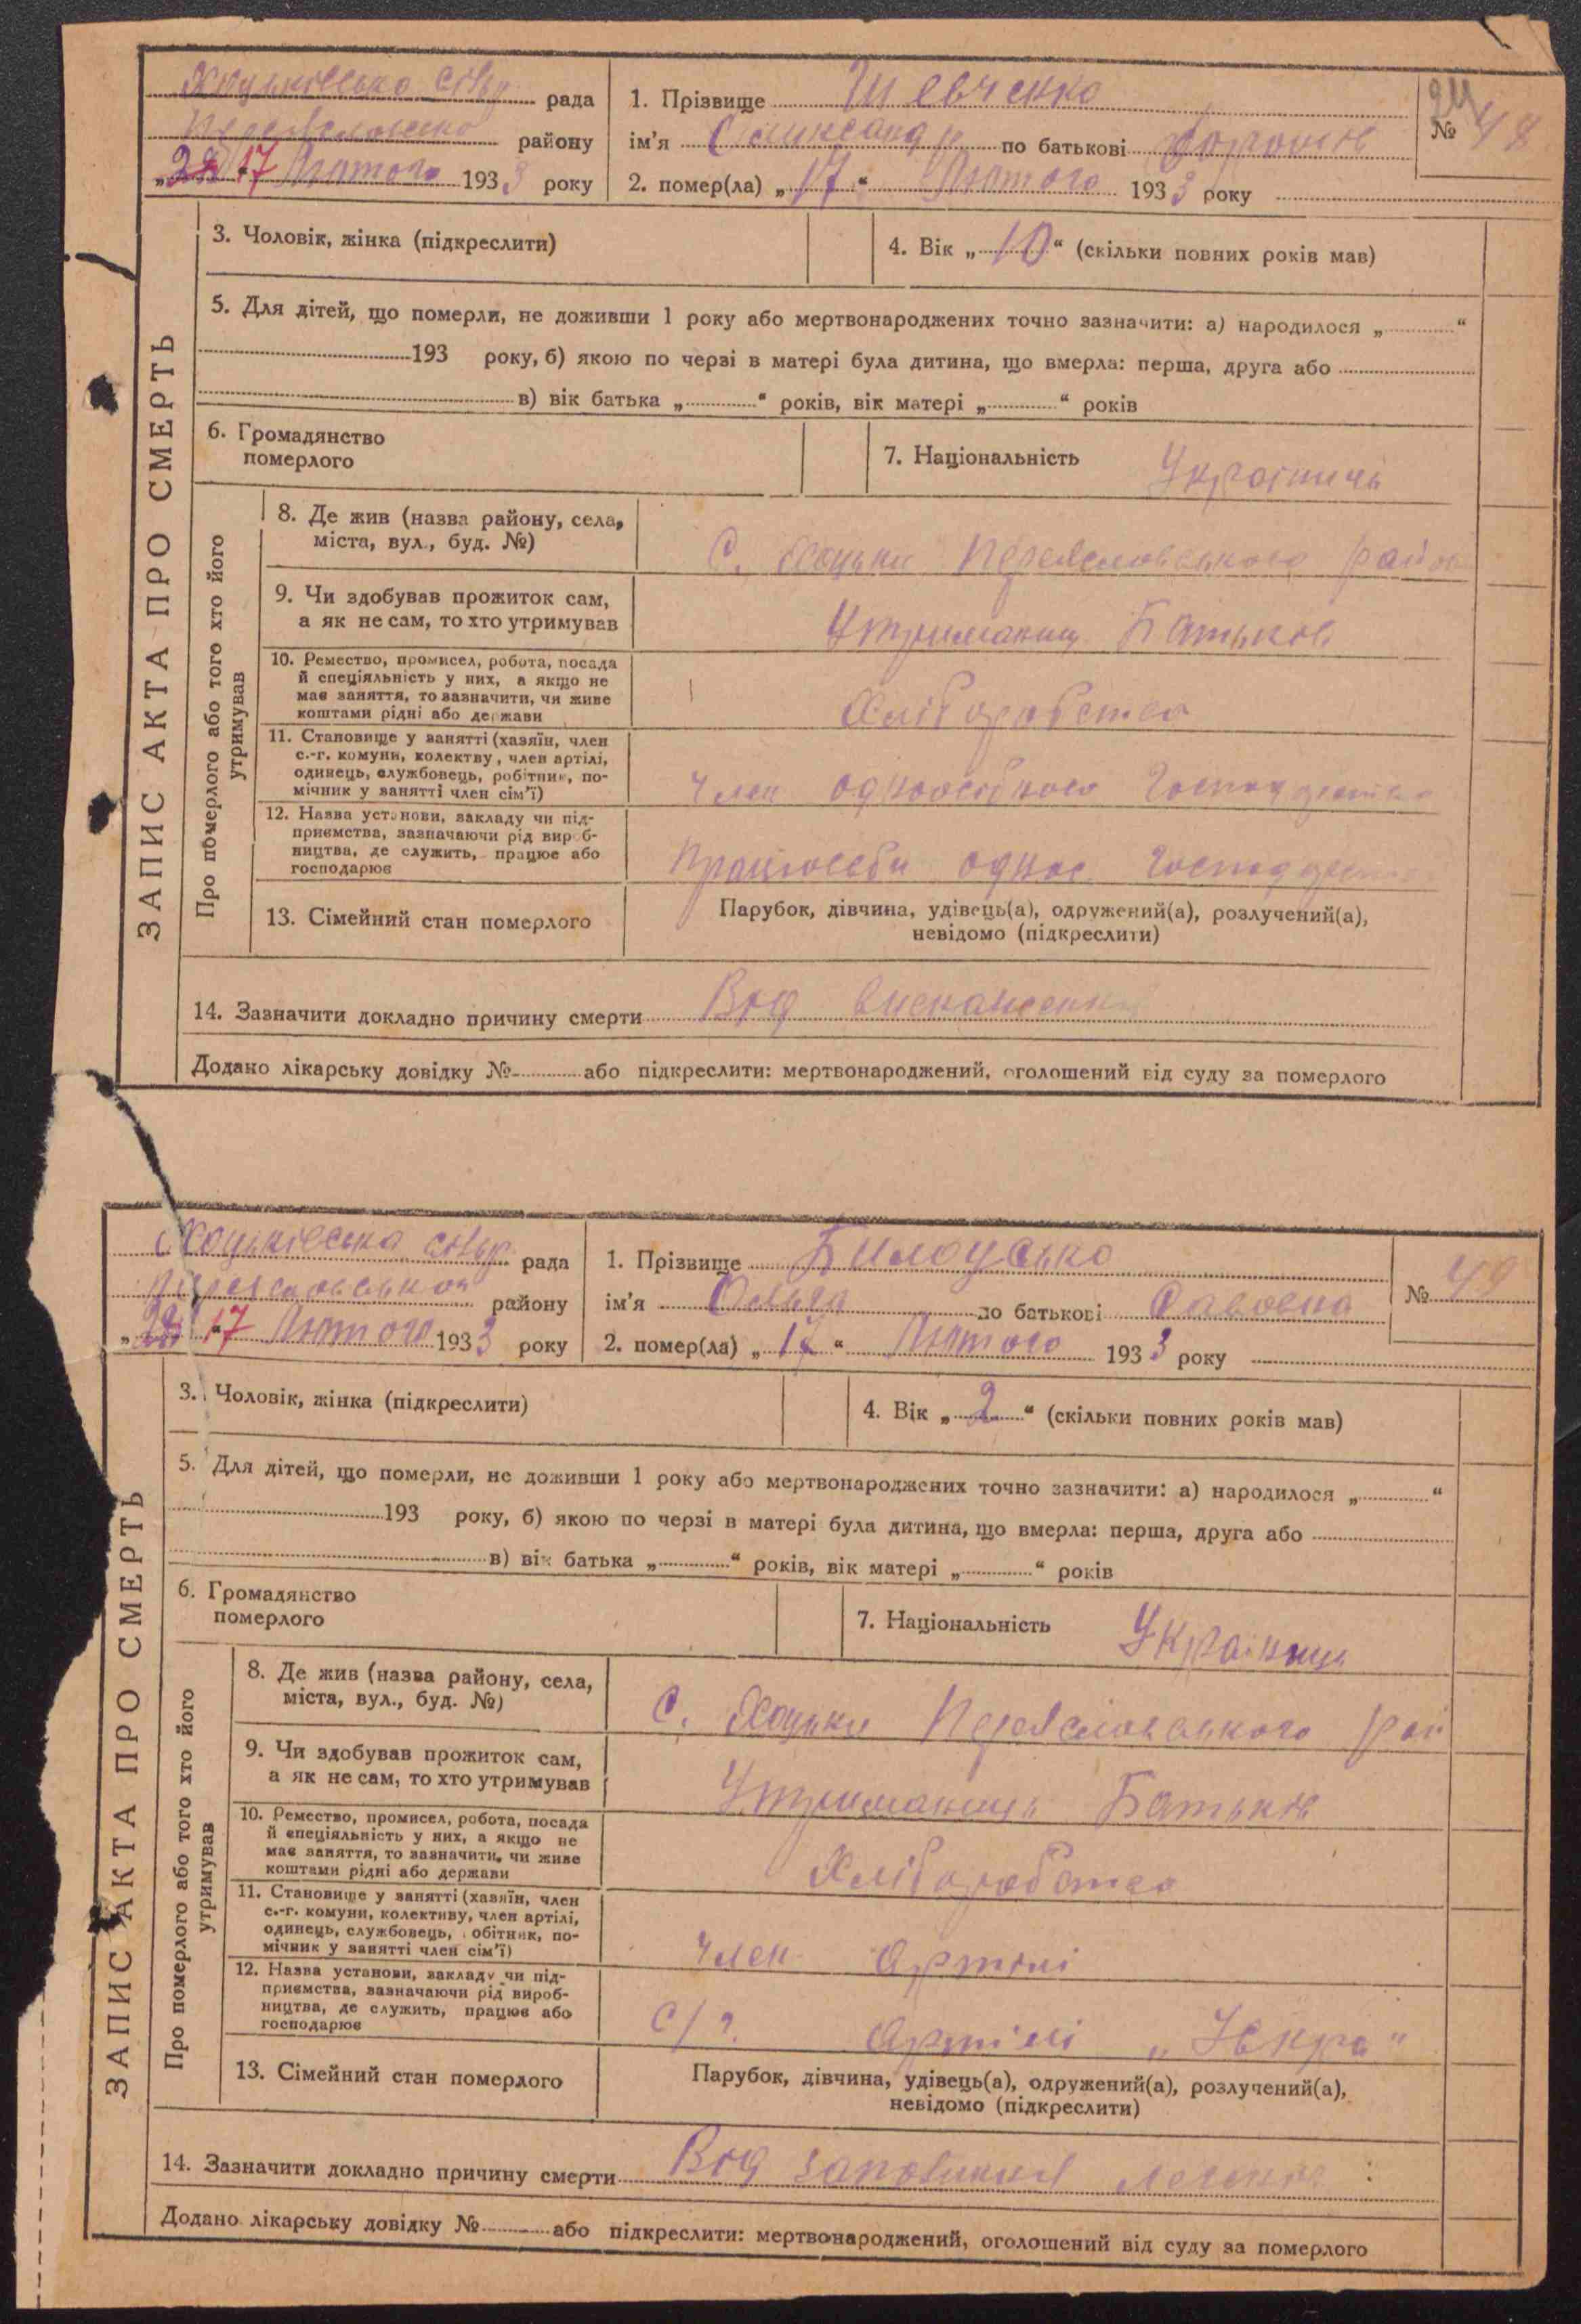 Хоцьківська сільр. рада
Переяславсько району
„28 17 Лютого 1933 року
1. Прізвище Шевченко
ім'я Олександр по батькові
2. помер(ла) „17“ Лютого 1933 року
24
№ 48
ЗАПИС АКТА ПРО СМЕРТЬ
3. Чоловік, жінка (підкреслити)
4. Вік „10“ (скільки повних років мав)
5. Для дітей, що померли, не доживши 1 року або мертвонароджених точно зазначити: а) народилося „ “
193 року, б) якою по черзі в матері була дитина, що вмерла: перша, друга або
в) вік батька „ “ років, вік матері „ “ років
6. Громадянство
померлого
7. Національність Українець
Про померлого або того хто його
утримував
8. Де жив (назва району, села,
міста, вул., буд. №)
С. Хоцьки Переяславського район
9. Чи здобував прожиток сам,
а як не сам, то хто утримував
Утриманец Батьків
10. Ремество, промисел, робота, посада
й спеціяльність у них, а якщо не
має заняття, то зазначити, чи живе
коштами рідні або держави
Хліборобство
11. Становище у занятті (хазяїн, член
с.-г. комуни, колектву, член артілі,
одинець, службовець, робітник, по-
мічник у занятті член сім'ї)
Член одноосібного господарства
12. Назва установи, закладу чи під-
приємства, зазначаючи рід вироб-
ництва, де служить, працює або
господарює
однос. господарство
13. Сімейний стан померлого
Парубок, дівчина, удівець(а), одружений(а), розлучений(а),
невідомо (підкреслити)
14. Зазначити докладно причину смерти Від виснаження
Додано лікарську довідку № або підкреслити: мертвонароджений, оголошений від суду за померлого
Хоцьківська сільр. рада
Переяславськог району
„28 17 Лютого 1933 року
1. Прізвище Билоусько
ім'я Ольга по батькові Савовна
2. помер(ла) „17“ Лютого 1933 року
№ 49
ЗАПИС АКТА ПРО СМЕРТЬ
3. Чоловік, жінка (підкреслити)
4. Вік „2“ (скільки повних років мав)
5. Для дітей, що померли, не доживши 1 року або мертвонароджених точно зазначити: а) народилося „ “
193 року, б) якою по черзі в матері була дитина, що вмерла: перша, друга або
в) вік батька „ “ років, вік матері „ “ років
6. Громадянство
померлого
7. Національність Українца
Про померлого або того хто його
утримував
8. Де жив (назва району, села,
міста, вул., буд. №)
С. Хоцьки Переяславського рай
9. Чи здобував прожиток сам,
а як не сам, то хто утримував
Утриманець Батьків
10. Ремество, промисел, робота, посада
й спеціяльність у них, а якщо не
має заняття, то зазначити, чи живе
коштами рідні або держави
Хліборобство
11. Становище у занятті (хазяїн, член
с.-г. комуни, колективу, член артілі,
одинець, службовець, робітник, по-
мічник у занятті член сім'ї)
Член Артілі
12. Назва установи, закладу чи під-
приємства, зазначаючи рід вироб-
ництва, де служить, працює або
господарює
С/г. Артілі „Іскра“
13. Сімейний стан померлого
Парубок, дівчина, удівець(а), одружений(а), розлучений(а),
невідомо (підкреслити)
14. Зазначити докладно причину смерти Від заповиння легких
Додано лікарську довідку № або підкреслити: мертвонароджений, оголошений від суду за померлого